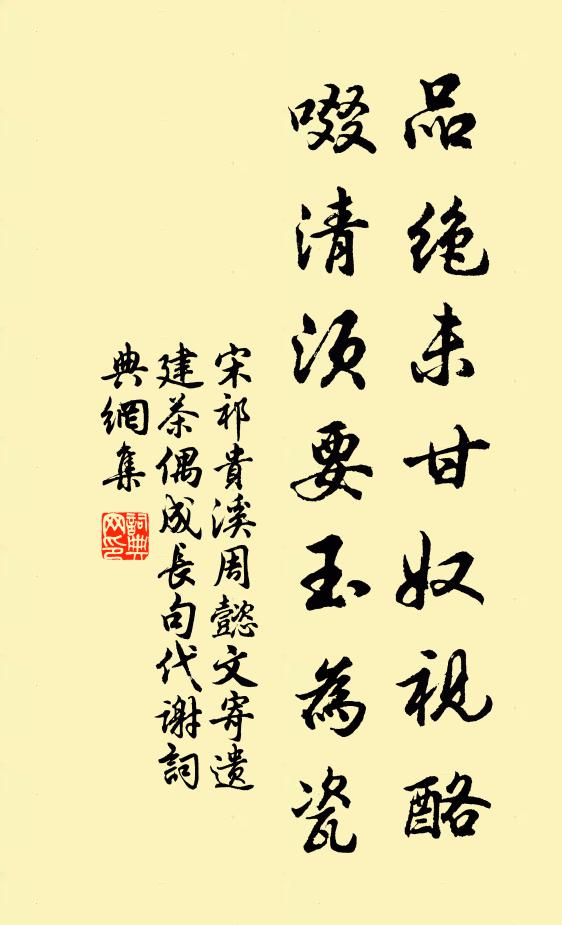 品絶未甘奴視酪
啜清須要玉為瓷
宋祁貴溪周懿文寄遺
建茶偶成長句代謝詞
典網集
詞典網印